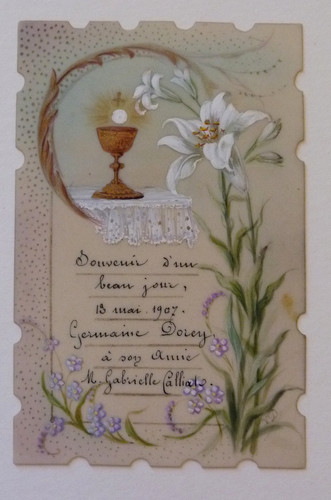 Souvenir d'un
beau jour,
13 mai 1907.
Germaine Dorey,
à son Amie
M. Gabrielle Calliat.